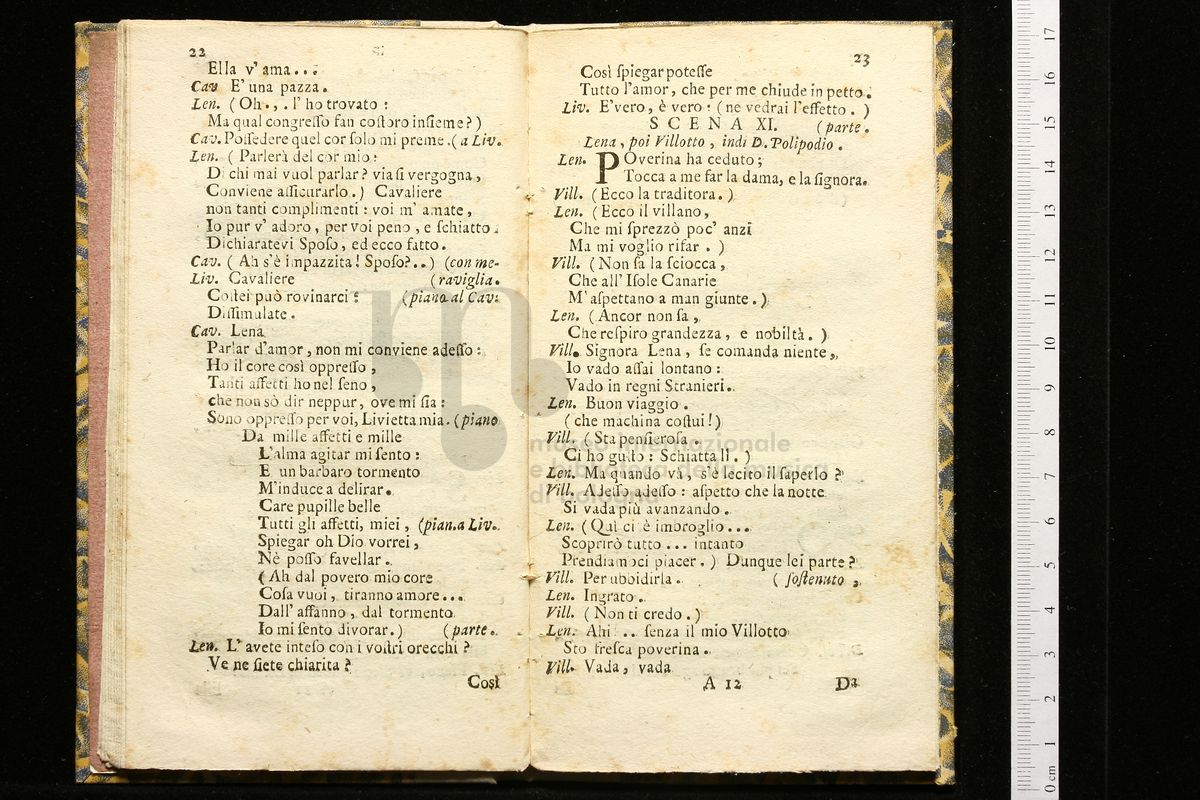 22
Ella v' ama...
Cav E' una pazza.
Len. (Oh.,. l' ho trovato:
Ma qual congreſſo fan coſtoro inſieme?)
Cav. Poſſedere quel cor ſolo mi preme.(a Liv.
Len. (Parlerà del cor mio:
Di chi mai vuol parlar? via ſi vergogna,
Conviene aſſicurarlo.) Cavaliere
non tanti complimenti: voi m' amate,
Io pur v' adoro, per voi peno, e ſchiatto.
Dichiaratevi Spoſo, ed ecco fatto.
Cav. (Ah s'è impazzita! Spoſo?..) (con me-
Liv. Cavaliere (raviglia.
Coſtei può rovinarci: (piano al Cav:
Diſſimulate.
Cav. Lena
Parlar d'amor, non mi conviene adeſſo:
Ho il core così oppreſſo,
Tanti affetti ho nel ſeno,
che non sò dir neppur, ove mi ſia:
Sono oppreſſo per voi, Livietta mia. (piano
Da mille affetti e mille
L'alma agitar mi ſento:
E un barbaro tormento
M'induce a delirar.
Care pupille belle
Tutti gli affetti, miei, (pian.a Liv.
Spiegar oh Dio vorrei,
Nè poſſo favellar.
(Ah dal povero mio core
Coſa vuoi, tiranno amore...
Dall' affanno, dal tormento
Io mi ſento divorar.) (parte.
Len. L' avete inteſo con i voſtri orecchi?
Ve ne ſiete chiarita?
Così
23
Così ſpiegar poteſſe
Tutto l'amor, che per me chiude in petto.
Liv. E'vero, è vero: (ne vedrai l'effetto.)
SCENA XI. (parte.
Lena, poi Villotto, indi D. Polipodio.
Len. POverina ha ceduto;
Tocca a me far la dama, e la ſignora.
Vill. (Ecco la traditora.)
Len. (Ecco il villano,
Che mi ſprezzò poc' anzi
Ma mi voglio rifar.)
Vill. (Non fa la ſciocca,
Che all' Iſole Canarie
M' aſpettano a man giunte.)
Len. (Ancor non ſa,
Che reſpiro grandezza, e nobiltà.)
Vill. Signora Lena, ſe comanda niente,
Io vado aſſai lontano:
Vado in regni Stranieri.
Len. Buon viaggio.
(che machina coſtui!)
Vill. (Sta penſieroſa.
Ci ho guſto: Schiatta lì.)
Len. Ma quando và, s'è lecito il ſaperlo?
Vill. Adeſſo adeſſo: aſpetto che la notte
Si vada più avanzando.
Len. (Quì ci è imbroglio...
Scoprirò tutto... intanto
Prendiamoci piacer.) Dunque lei parte?
Vill. Per ubbidirla. (ſoſtenuto,
Len. Ingrato.
Vill. (Non ti credo.)
Len. Ahi... ſenza il mio Villotto
Sto freſca poverina.
Vill. Vada, vada
A 12 Da
museo internazionale
e biblioteca della musica
di bologna
0 cm 1 2 3 4 5 6 7 8 9 10 11 12 13 14 15 16 17